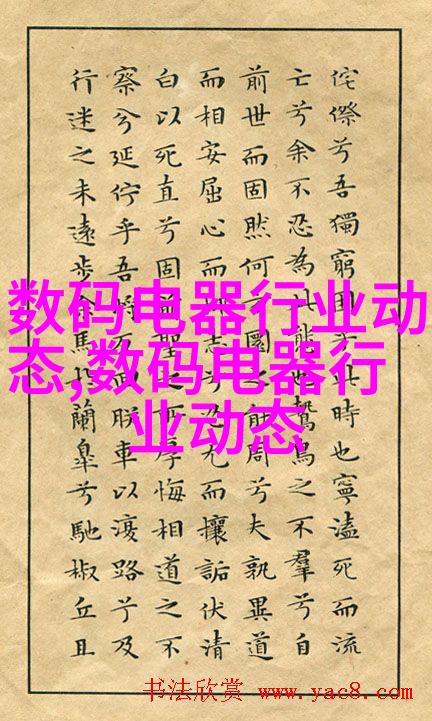 侘傺兮吾獨窮困乎此時也寧溘死而流
亡兮余不忍為此態也鷙鳥之不羣兮自
前世而固然何方圜之能周兮夫孰異道
而相安屈心而抑志兮忍尤而攘詬伏清
白以死直兮固前聖之所厚悔相道之不
察兮延佇乎吾將反回朕車以復路兮及
行迷之未遠步余馬於蘭皋兮馳椒丘且
数码电器行业动
态,数码电器行
业动态
书法欣赏 www.yac8.com